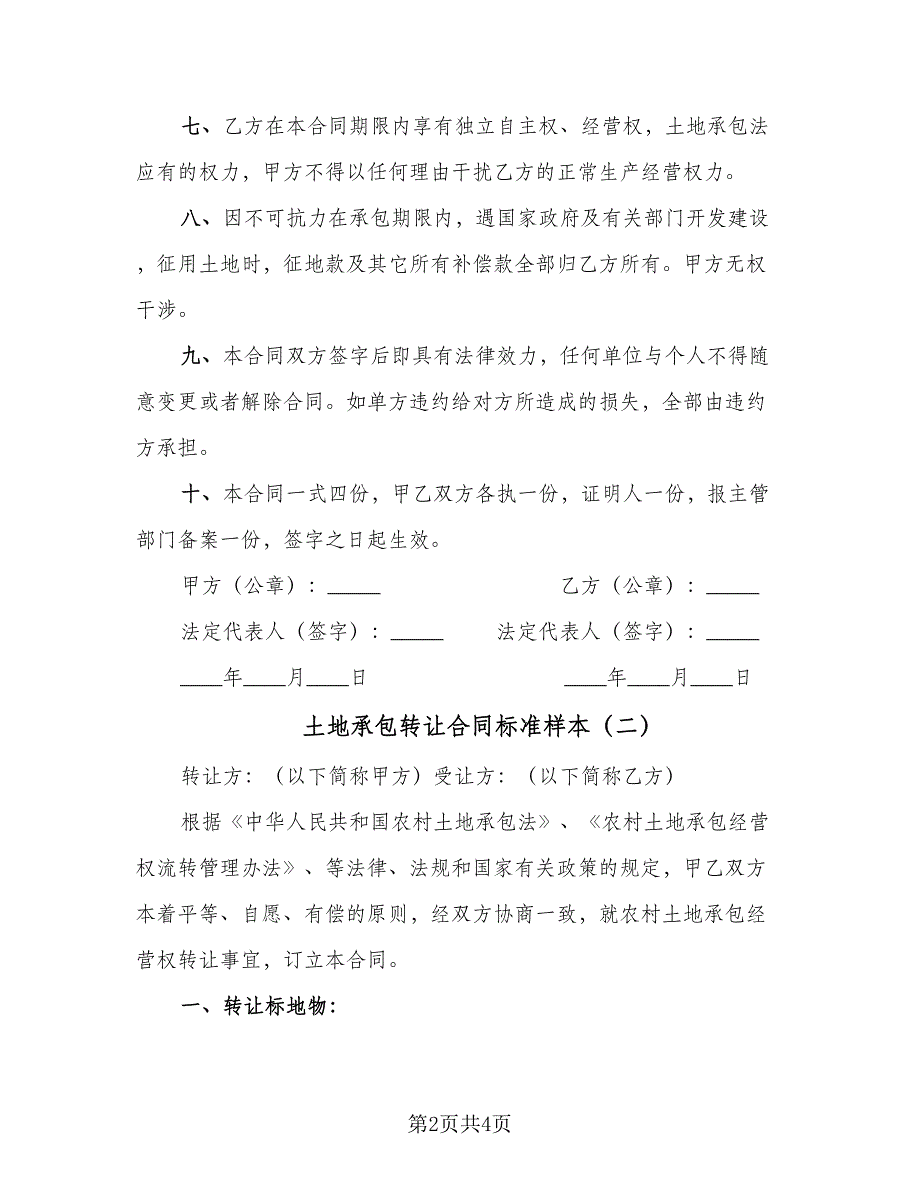 七、乙方在本合同期限内享有独立自主权、经营权，土地承包法
应有的权力，甲方不得以任何理由干扰乙方的正常生产经营权力。
八、因不可抗力在承包期限内，遇国家政府及有关部门开发建设
，征用土地时，征地款及其它所有补偿款全部归乙方所有。甲方无权
干涉。
九、本合同双方签字后即具有法律效力，任何单位与个人不得随
意变更或者解除合同。如单方违约给对方所造成的损失，全部由违约
方承担。
十、本合同一式四份，甲乙双方各执一份，证明人一份，报主管
部门备案一份，签字之日起生效。
甲方（公章）：_____ 乙方（公章）：_____
法定代表人（签字）：_____ 法定代表人（签字）：_____
____年____月____日 ____年____月____日
土地承包转让合同标准样本（二）
转让方：（以下简称甲方）受让方：（以下简称乙方）
根据《中华人民共和国农村土地承包法》、《农村土地承包经营
权流转管理办法》、等法律、法规和国家有关政策的规定，甲乙双方
本着平等、自愿、有偿的原则，经双方协商一致，就农村土地承包经
营权转让事宜，订立本合同。
一、转让标地物：
第2页共4页